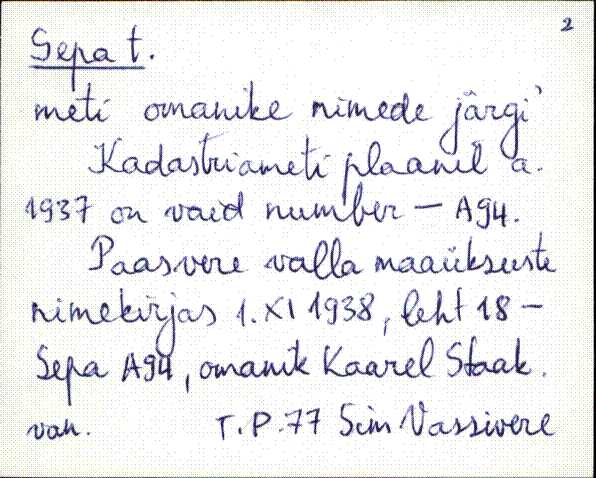 2
Sepa t.
meti omanike nimede järgi
Kadastriameti plaanil a.
1937 on vaid number – A94.
Paasvere valla maaüksuste
nimekirjas 1.XI 1938, leht 18 –
Sepa A94, omanik Kaarel Staak.
van. T.P. 77 Sim Vassivere